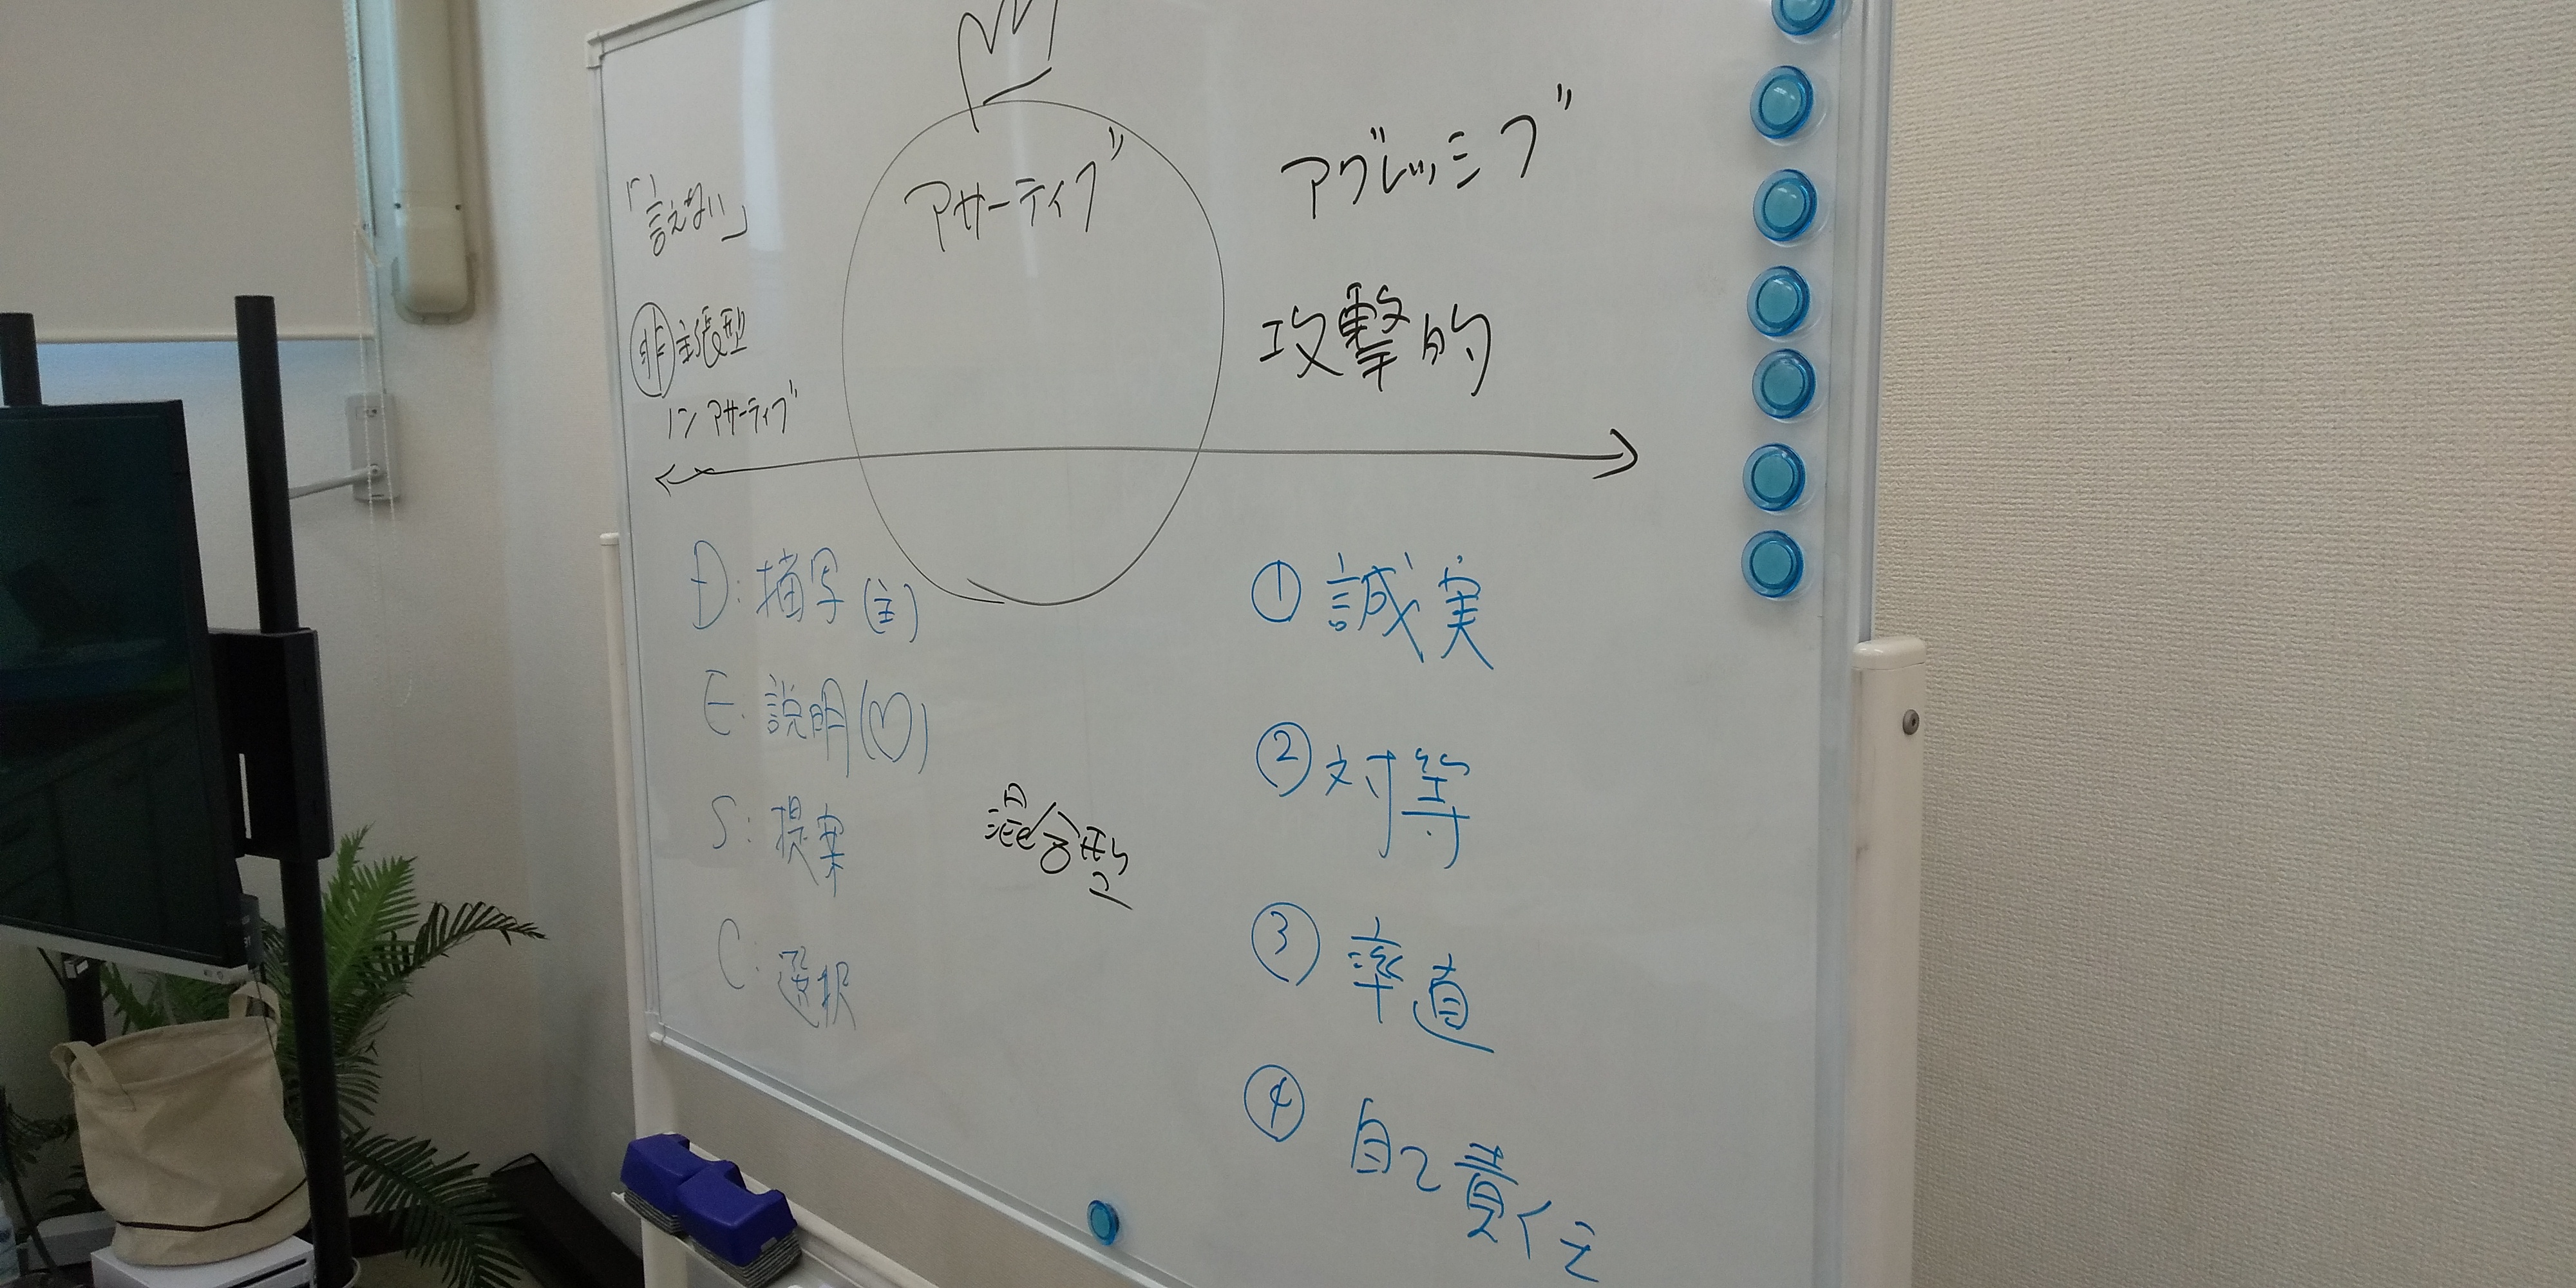 「言えない」
非主張型
ノンアサーティブ
アサーティブ
アグレッシブ
攻撃的
D: 描写(主)
E: 説明(♡)
S: 提案
C: 選択
混合型
① 誠実
② 対等
③ 率直
④ 自己責任